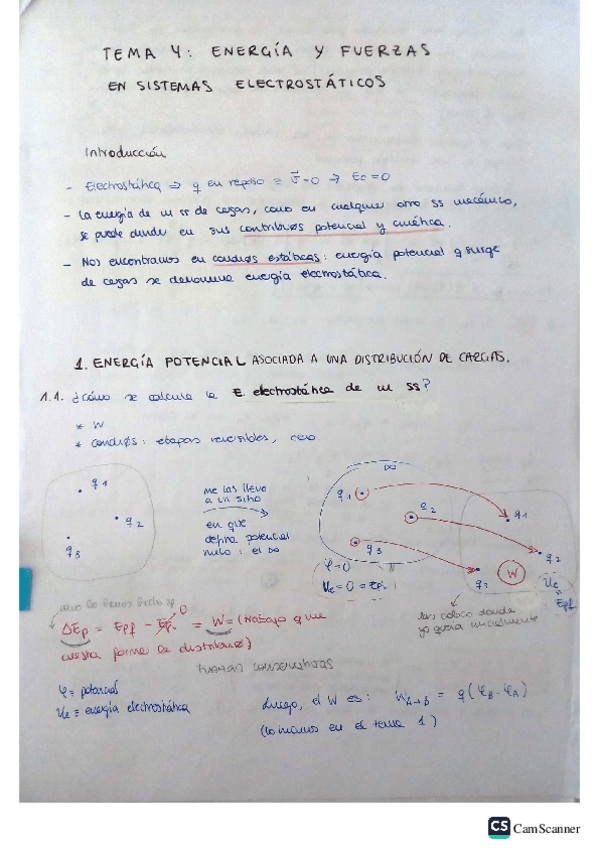 TEMA 4: ENERGÍA Y FUERZAS
EN SISTEMAS ELECTROSTÁTICOS
Introducción
- Electrostática ⇒ q en reposo ≡ v⃗=0 → Ec=0
- La energía de un ss de cargas, como en cualquier otro ss mecánico,
se puede dividir en sus contribuøs potencial y cinética.
- Nos encontramos en condiøs estáticas: energía potencial q surge
de cargas se denomina energía electrostática.
1. ENERGÍA POTENCIAL ASOCIADA A UNA DISTRIBUCIÓN DE CARGAS.
1.1. ¿Cómo se calcula la E. electrostática de un ss?
* W
* condiøs: etapas reversibles,
q1
q2
q3
me las llevo
a un sitio
en que
defina potencial
nulo: el ∞
∞
q1
q2
q3
φ=0
Ue = 0 = Epi
q1
q2
q3
W
Ue
=
Epf
las coloco donde
yo quería inicialmente
ΔEp = Epf - Epi 0 = W = (trabajo que
cuesta formar la distribuø)
fuerzas conservativas
φ ≡ potencial
Ue ≡ energía electrostática
Luego, el W es: W A→B = q(φB - φA)
(lo vimos en el tema 1)
CS CamScanner